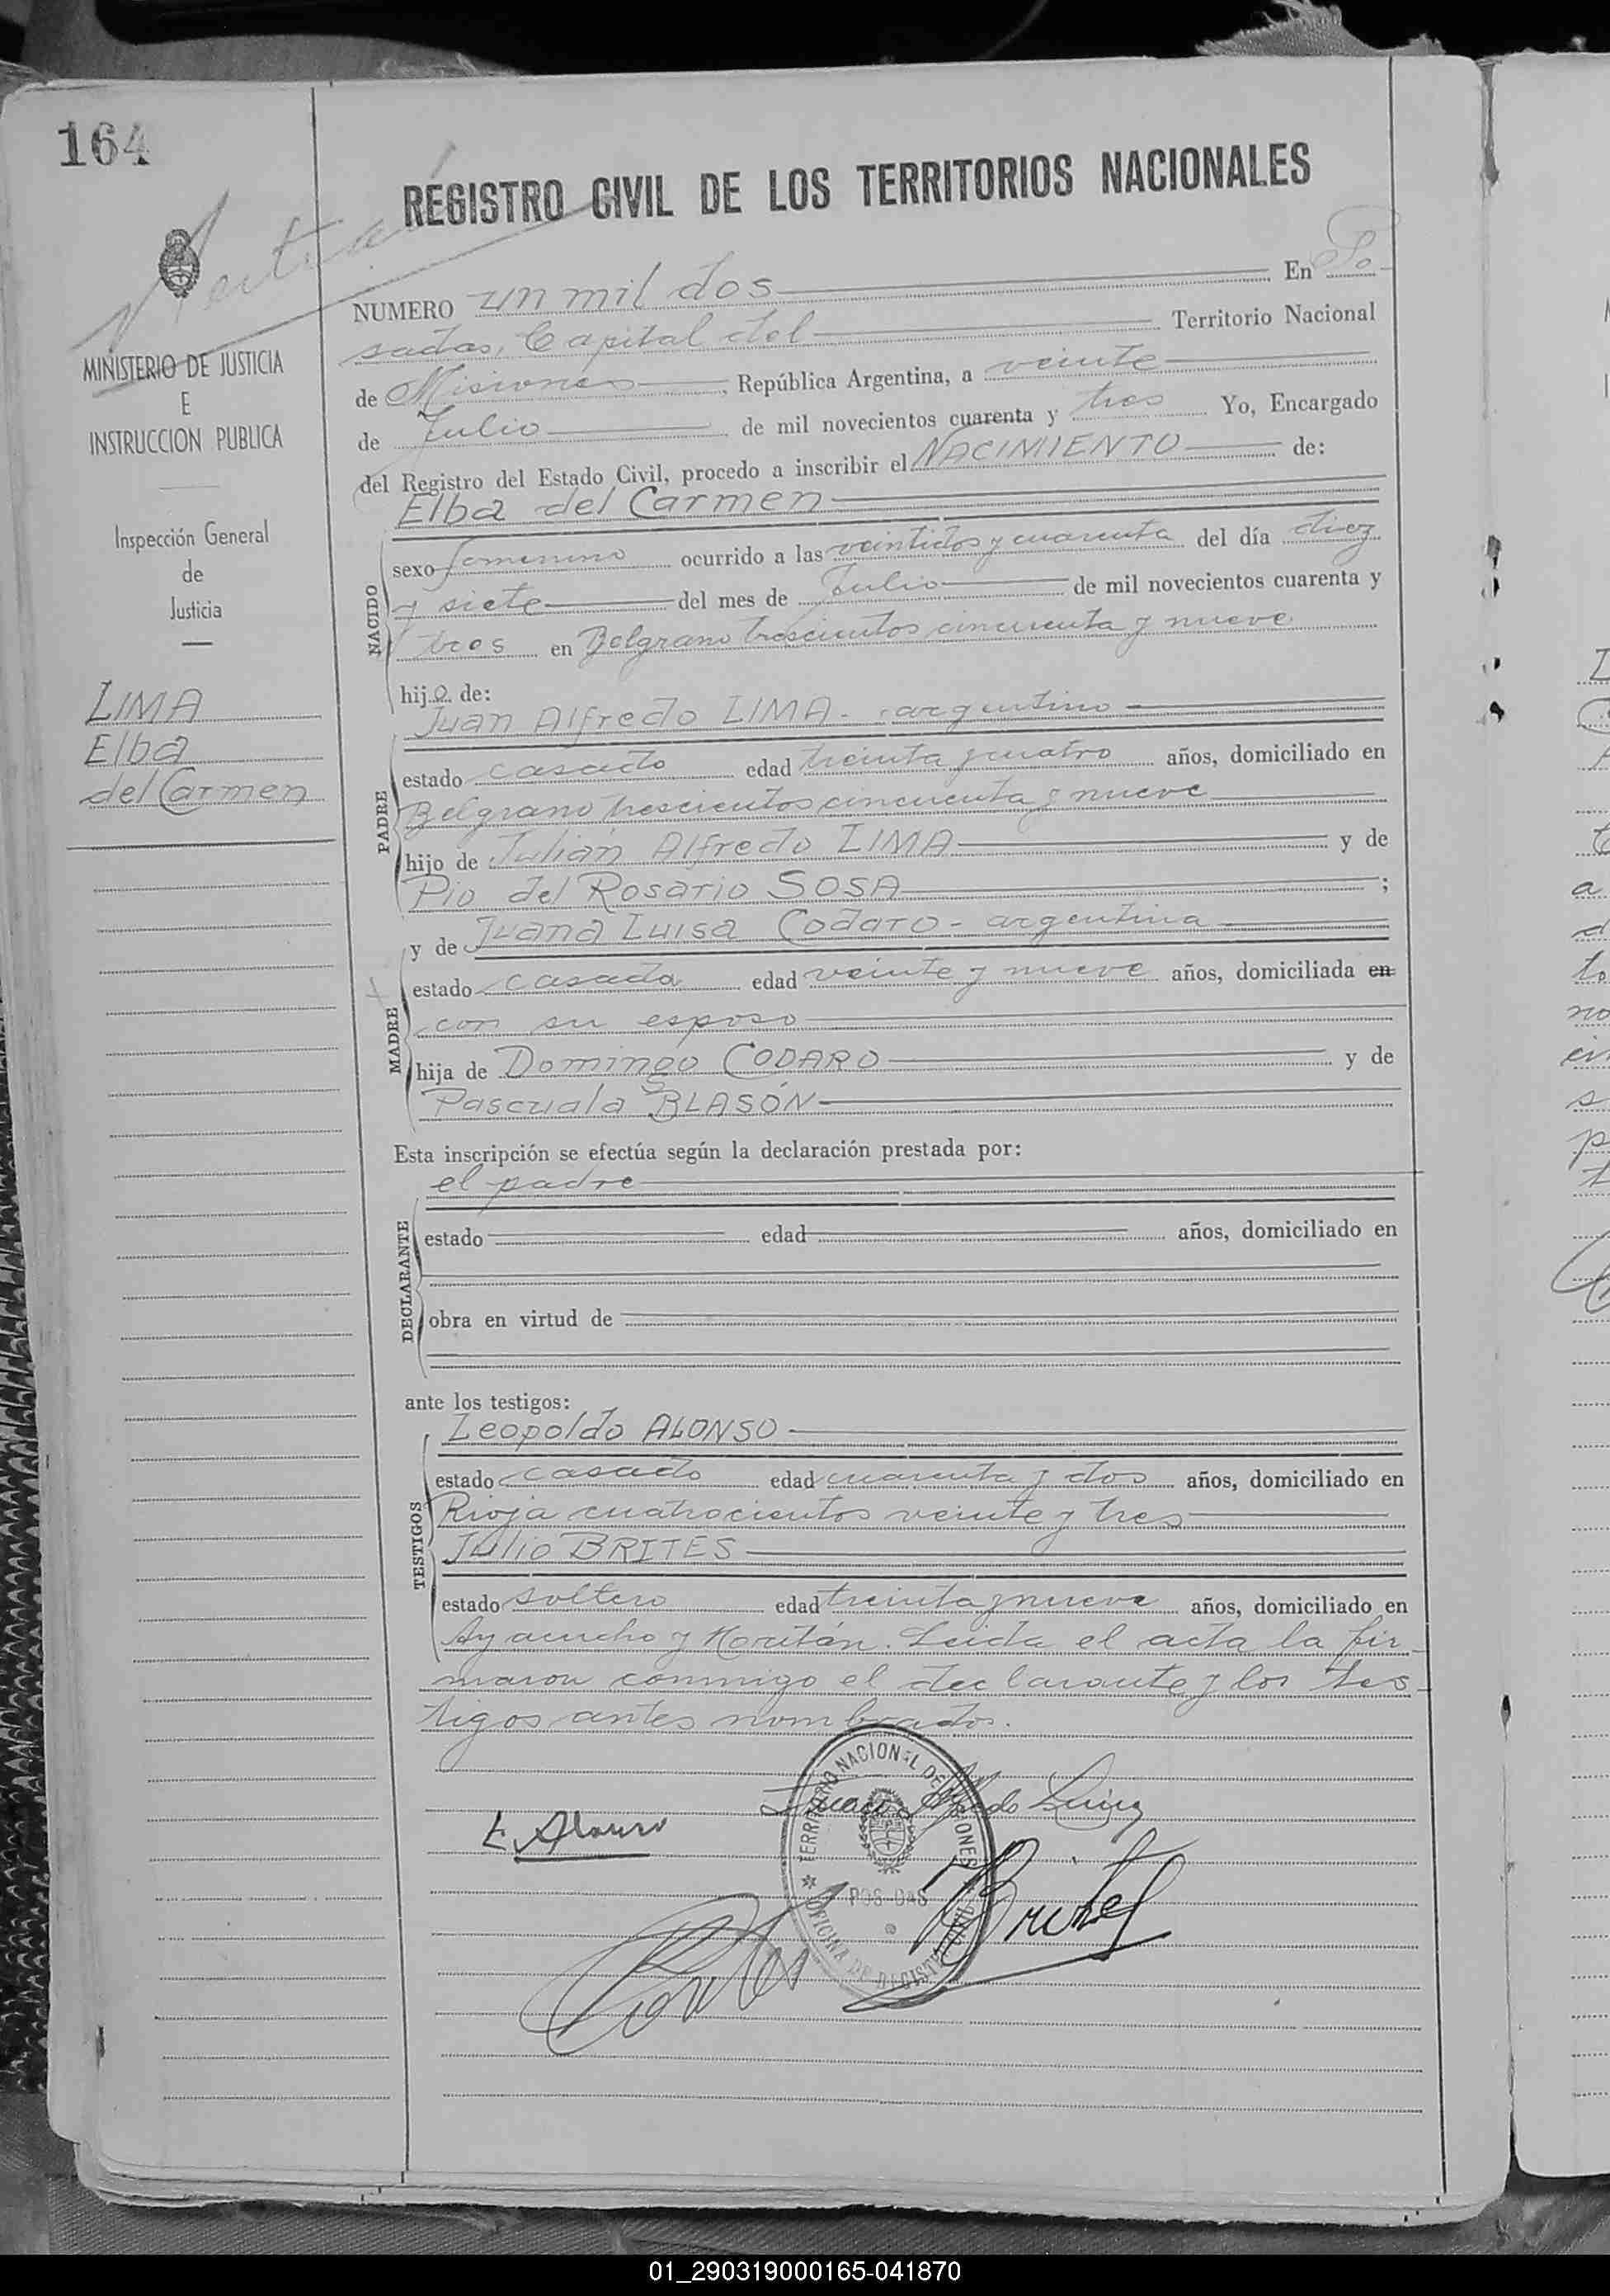 164
REGISTRO CIVIL DE LOS TERRITORIOS NACIONALES
NUMERO un mil dos En Po-
sadas, Capital del Territorio Nacional
de Misiones, República Argentina, a veinte
de Julio de mil novecientos cuarenta y tres Yo, Encargado
del Registro del Estado Civil, procedo a inscribir el NACIMIENTO de:
Elba del Carmen
NACIDO
sexo femenino ocurrido a las veintidos y cuarenta del día diez
y siete del mes de Julio de mil novecientos cuarenta y
tres en Belgrano trescientos cincuenta y nueve
hija de:
Juan Alfredo LIMA - argentino
PADRE
estado casado edad treinta y cuatro años, domiciliado en
Belgrano trescientos cincuenta y nueve
hijo de Julián Alfredo LIMA y de
Pio del Rosario SOSA ;
y de Juana Luisa Codaro - argentina
MADRE
estado casada edad veinte y nueve años, domiciliada en
con su esposo
hija de Domingo CODARO y de
Pascuala BLASÓN
Esta inscripción se efectúa según la declaración prestada por:
el padre
DECLARANTE
estado edad años, domiciliado en
obra en virtud de
ante los testigos:
Leopoldo ALONSO
TESTIGOS
estado casado edad cuarenta y dos años, domiciliado en
Rioja cuatrocientos veinte y tres
Julio BRITES
estado soltero edad treinta y nueve años, domiciliado en
Ayacucho y Roritán. Leida el acta la fir-
maron conmigo el declarante y los tes-
tigos antes nombrados.
Juan Alfredo Lima
L. Alonso
JBrites
TERRITORIO NACIONAL DE MISIONES
POSADAS
OFICINA DE REGISTRO CIVIL
MINISTERIO DE JUSTICIA
E
INSTRUCCION PUBLICA
Inspección General
de
Justicia
LIMA
Elba
del Carmen
01_290319000165-041870